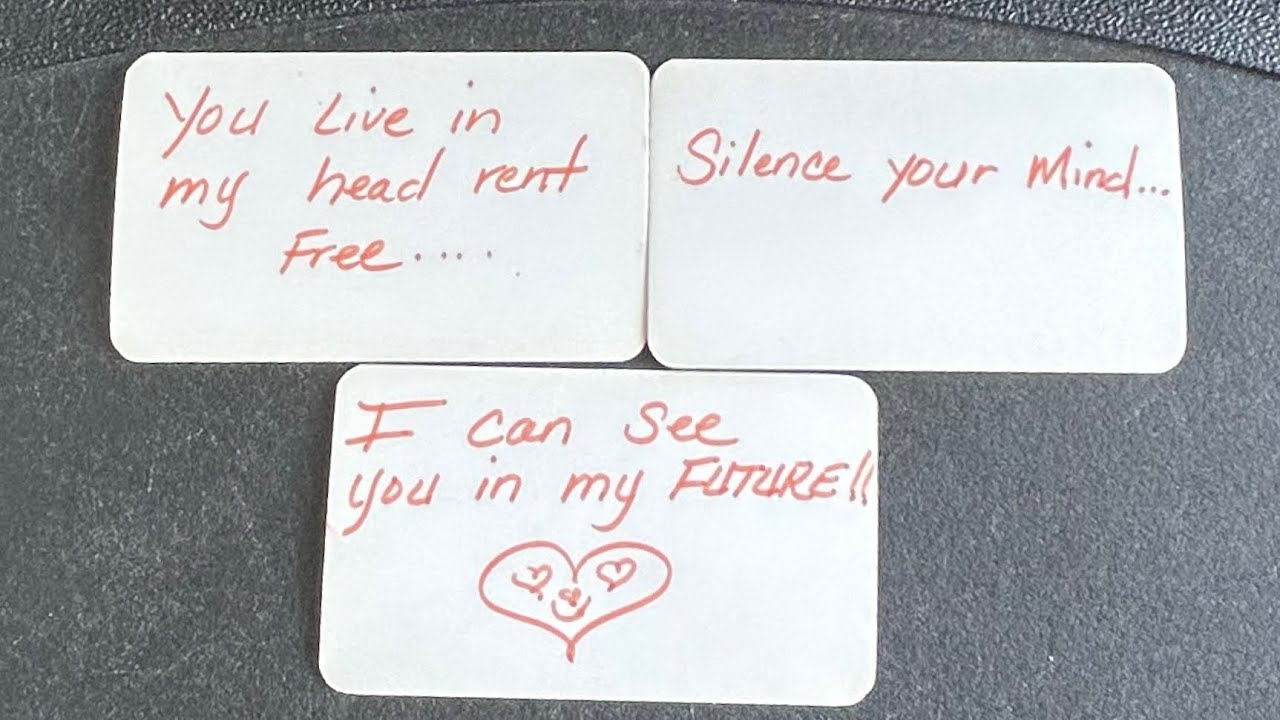 You Live in
my head rent
Free.....
Silence your Mind...
I can See
you in my FUTURE!!